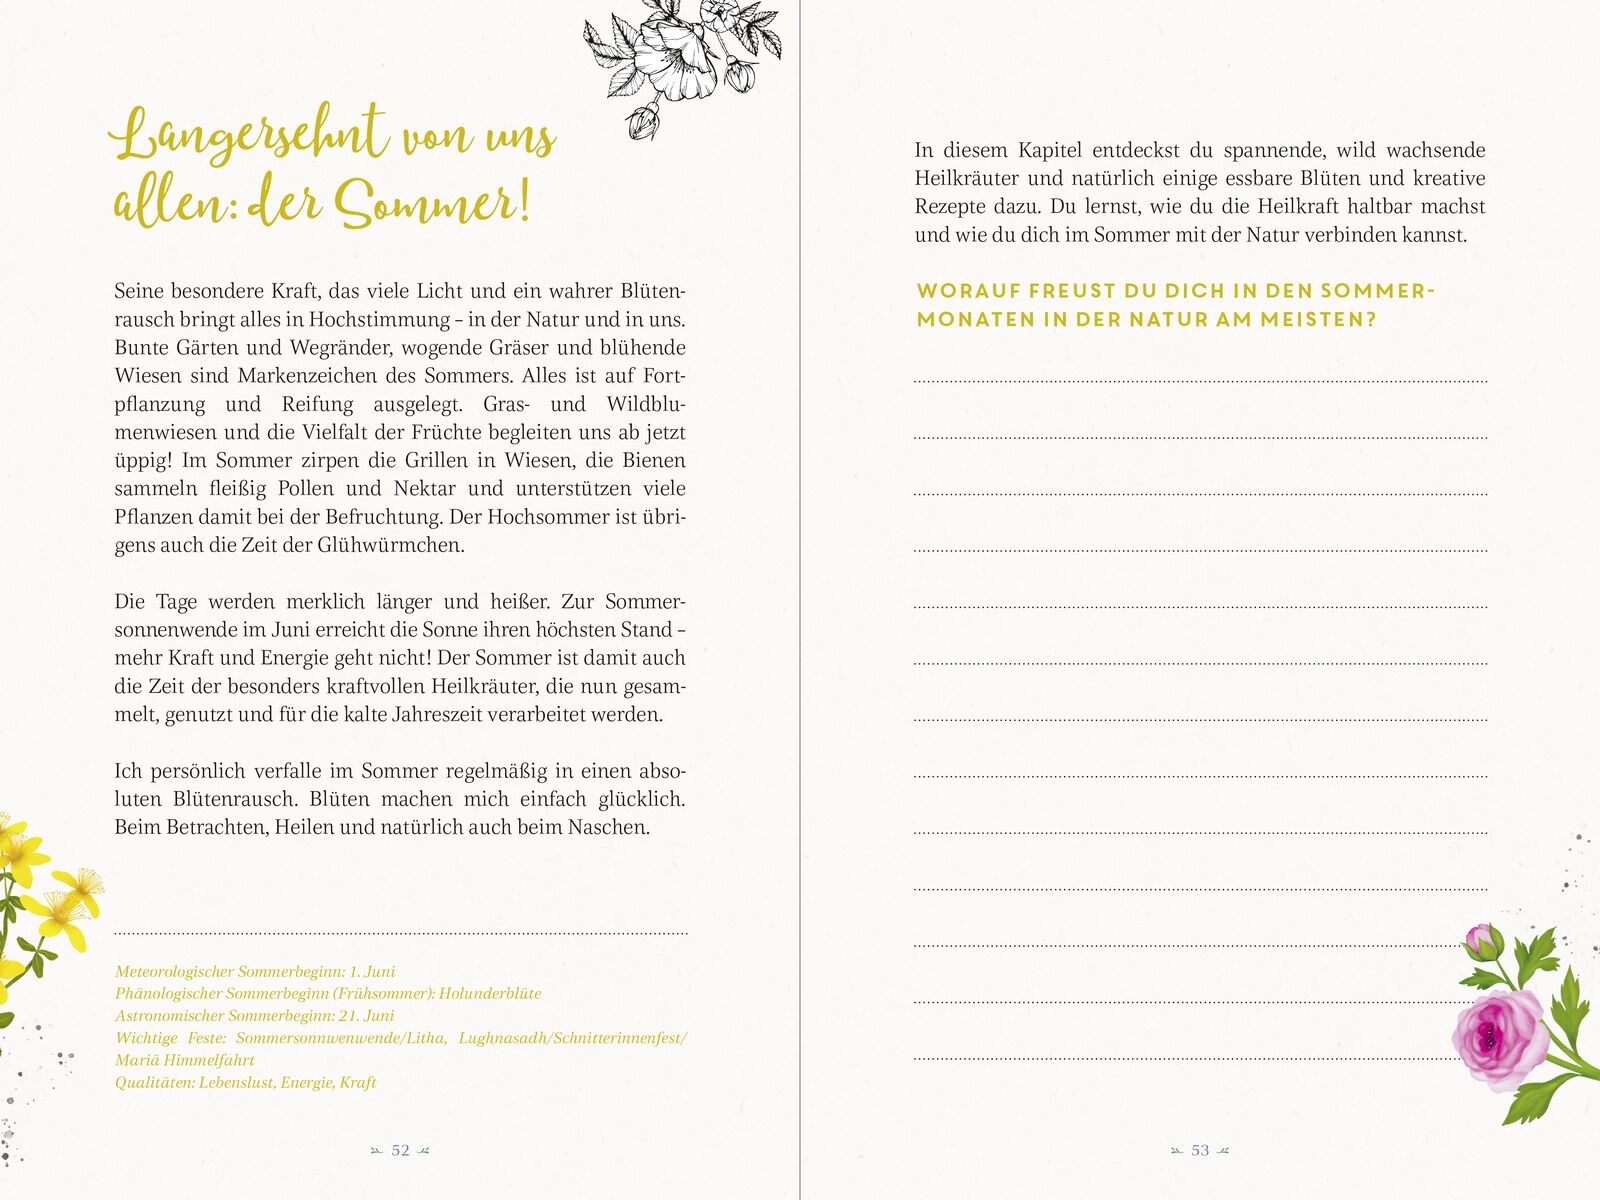 Langersehnt von uns
allen: der Sommer!
Seine besondere Kraft, das viele Licht und ein wahrer Blüten-
rausch bringt alles in Hochstimmung – in der Natur und in uns.
Bunte Gärten und Wegränder, wogende Gräser und blühende
Wiesen sind Markenzeichen des Sommers. Alles ist auf Fort-
pflanzung und Reifung ausgelegt. Gras- und Wildblu-
menwiesen und die Vielfalt der Früchte begleiten uns ab jetzt
üppig! Im Sommer zirpen die Grillen in Wiesen, die Bienen
sammeln fleißig Pollen und Nektar und unterstützen viele
Pflanzen damit bei der Befruchtung. Der Hochsommer ist übri-
gens auch die Zeit der Glühwürmchen.
Die Tage werden merklich länger und heißer. Zur Sommer-
sonnenwende im Juni erreicht die Sonne ihren höchsten Stand –
mehr Kraft und Energie geht nicht! Der Sommer ist damit auch
die Zeit der besonders kraftvollen Heilkräuter, die nun gesam-
melt, genutzt und für die kalte Jahreszeit verarbeitet werden.
Ich persönlich verfalle im Sommer regelmäßig in einen abso-
luten Blütenrausch. Blüten machen mich einfach glücklich.
Beim Betrachten, Heilen und natürlich auch beim Naschen.
Meteorologischer Sommerbeginn: 1. Juni
Phänologischer Sommerbeginn (Frühsommer): Holunderblüte
Astronomischer Sommerbeginn: 21. Juni
Wichtige Feste: Sommersonnwenwende/Litha, Lughnasadh/Schnitterinnenfest/
Mariä Himmelfahrt
Qualitäten: Lebenslust, Energie, Kraft
52
In diesem Kapitel entdeckst du spannende, wild wachsende
Heilkräuter und natürlich einige essbare Blüten und kreative
Rezepte dazu. Du lernst, wie du die Heilkraft haltbar machst
und wie du dich im Sommer mit der Natur verbinden kannst.
WORAUF FREUST DU DICH IN DEN SOMMER-
MONATEN IN DER NATUR AM MEISTEN?
53